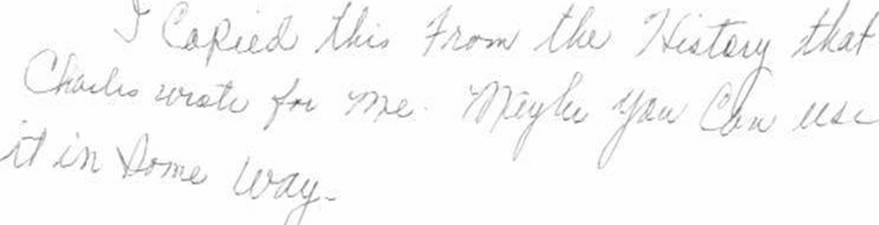 I Copied this From the History that
Charles wrote for me. Maybe you Can use
it in Some way.